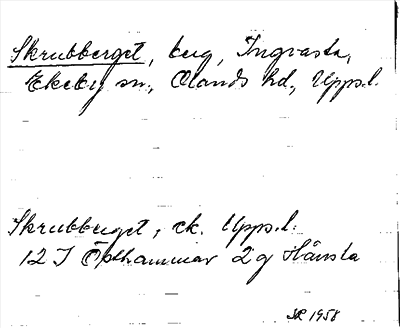 Skrubberget, berg, Ingvasta,
Ekeby sn., Olands hd., Upps.l.
Skrubberget, ek. Upps.l.
12 I Östhammar 2 g Hånsta
1958